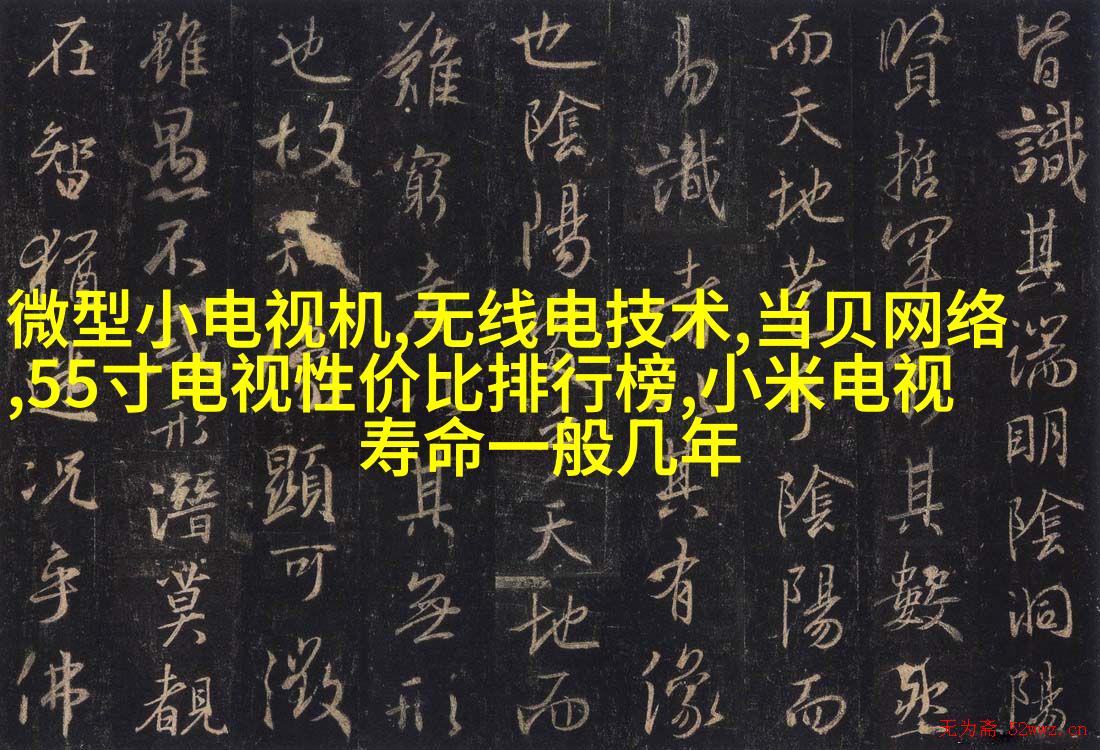 皆識其端明陰洞陽
賢哲罕其數
而天地苞乎陰陽而
易識者其有像
也陰陽天地而
難窮者其無形
也故知顯可徵
雖愚不形潛莫覩
在智猶迷況乎佛
微型小电视机,无线电技术,当贝网络
,55寸电视性价比排行榜,小米电视
寿命一般几年
无为斋 52wwz.cn